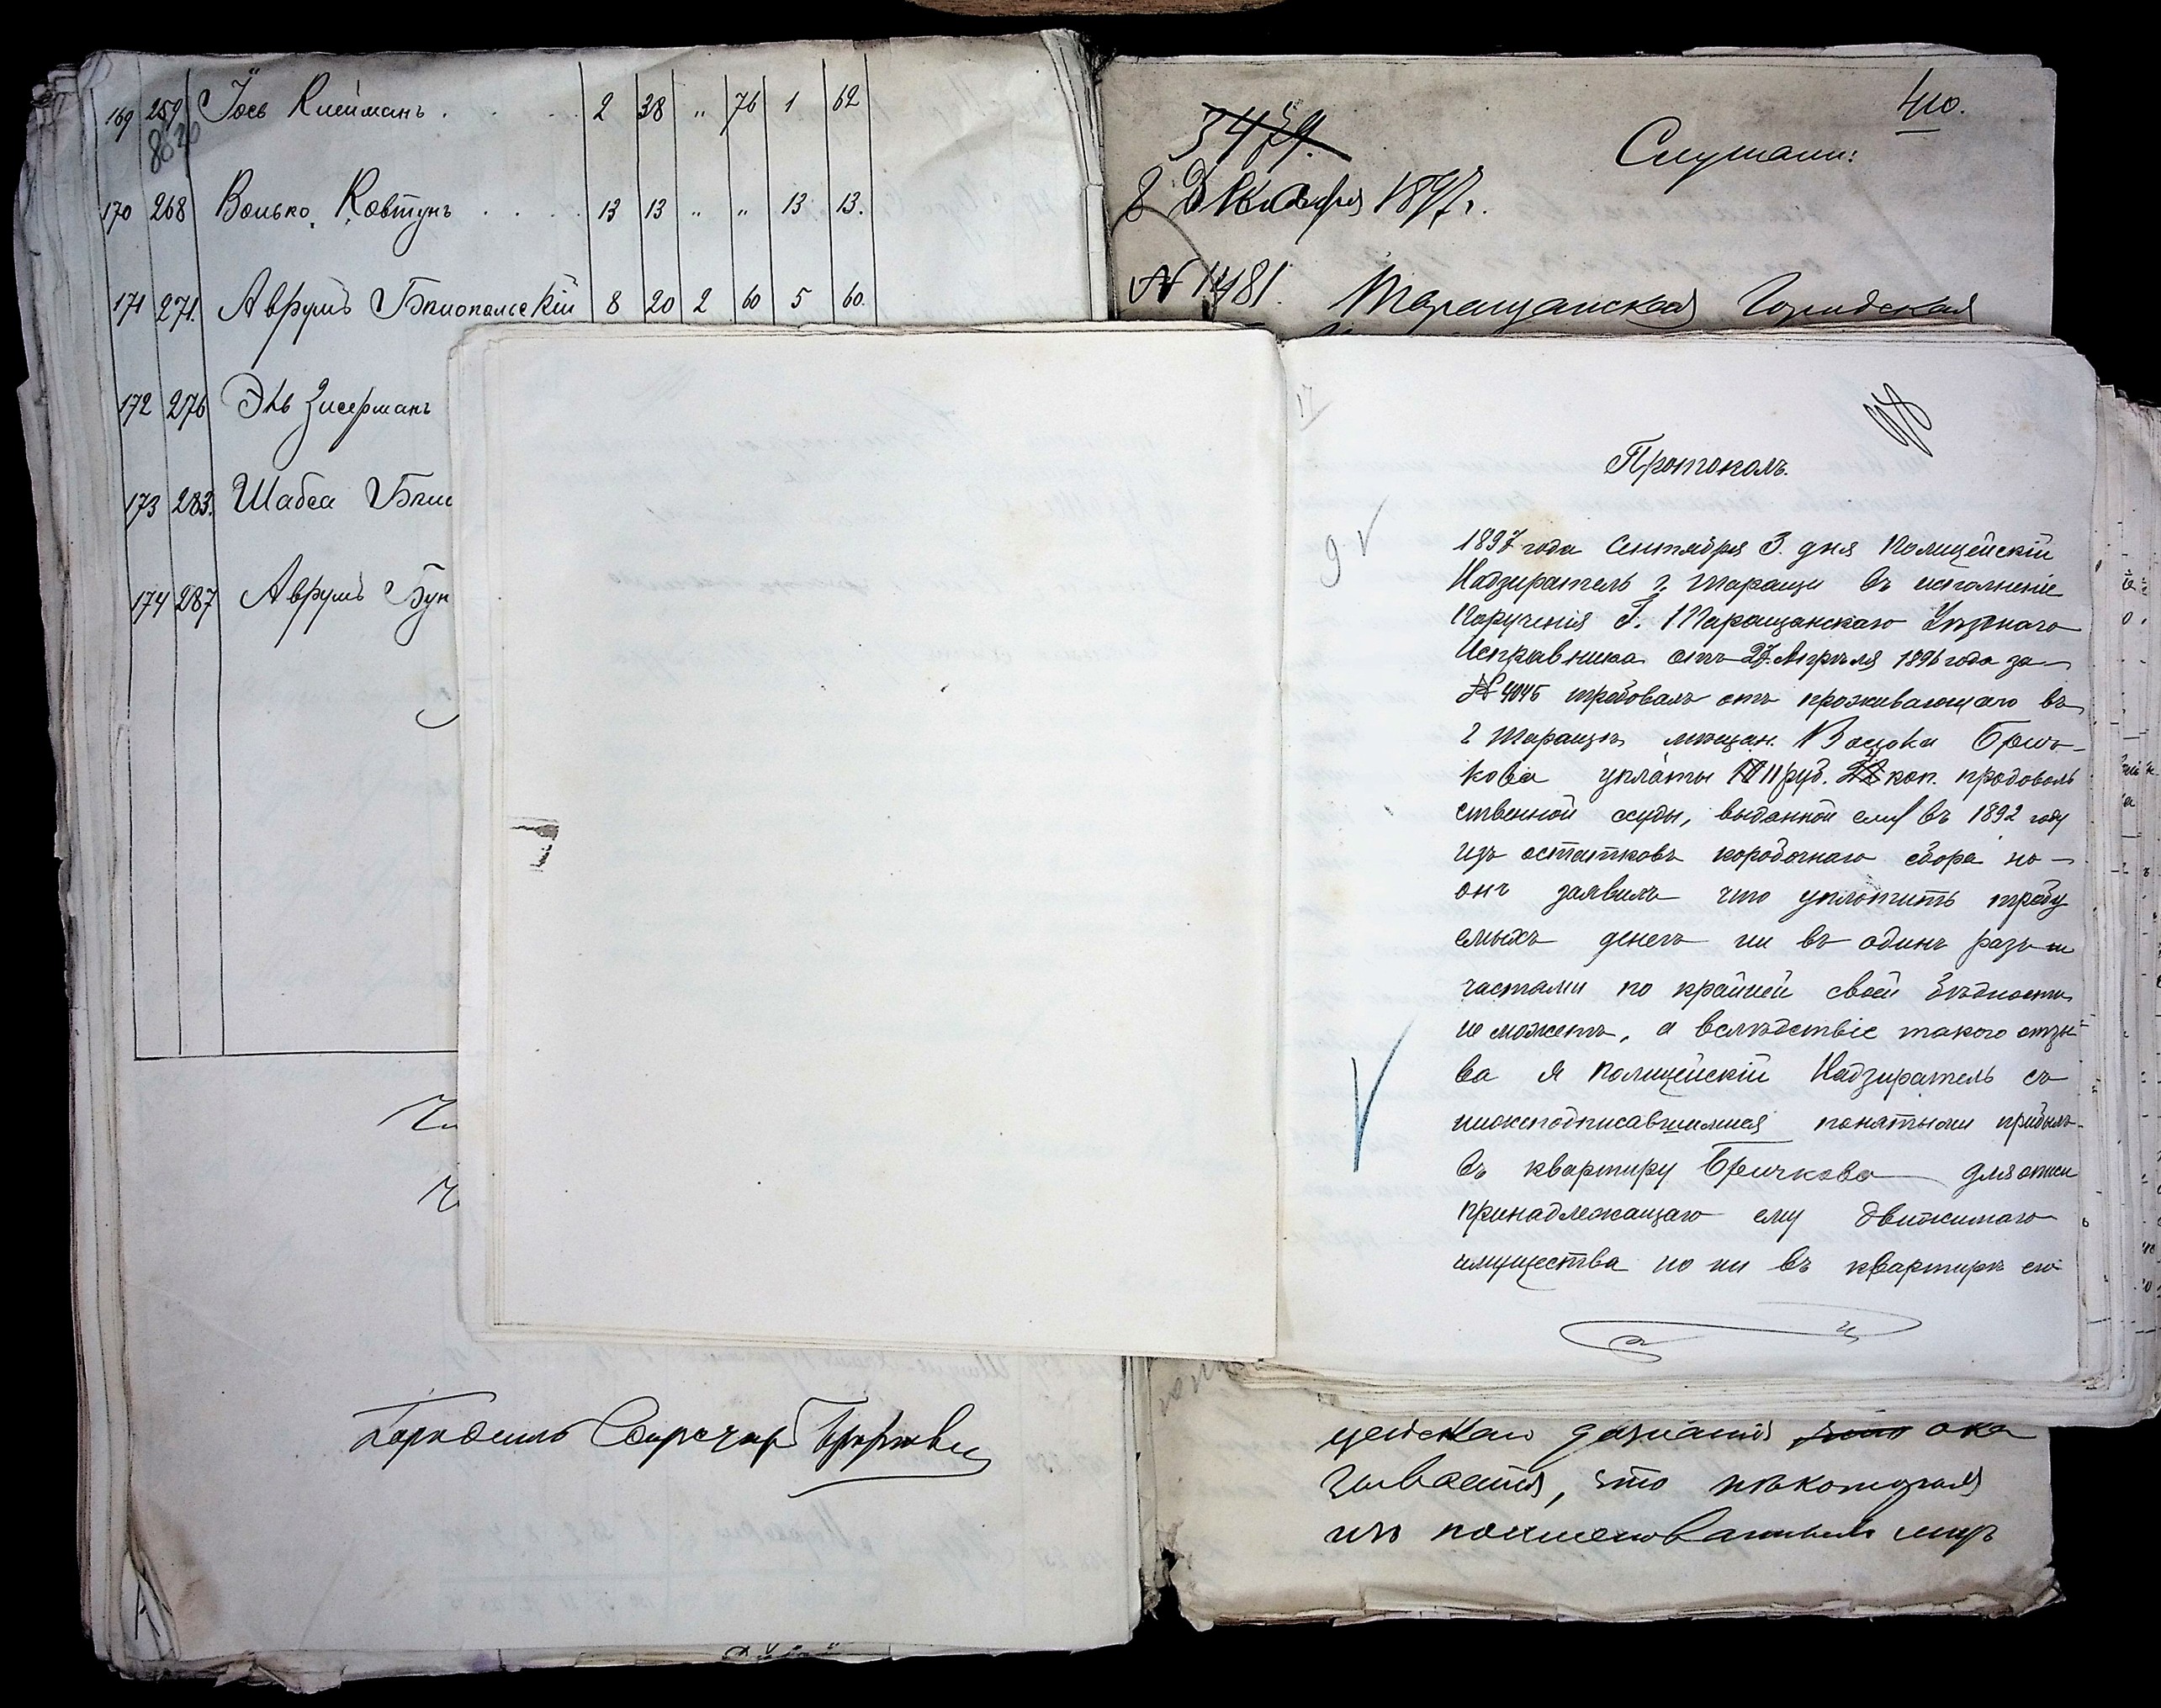 169 259 Іось Клейманъ . . . 2 38 „ 76 1 62
170 268 Волько Ковтунъ . . . . 13 13 „ „ 13 13.
171 271. Аврумъ Бѣлопольскій 8 20 2 60 5 60.
172 276 Эль Зисерманъ
173 283. Шабса
174 287 Аврумъ
410.
Слушали:
8 Декабря 1897 г.
Таращанская Городская
Протоколъ.
9
1897 года Сентября 3. дня Полицейскій
Надзиратель г. Таращи въ исполненіе
Порученія Г. Таращанскаго Уѣзднаго
Исправника отъ 27. Апрѣля 1896 года за
№ 4045 требовалъ отъ проживающаго въ
г Таращѣ мѣщан.
уплаты 11 руб. коп. продоволь
ственной ссуды, выданной ему въ 1892 году
изъ остатковъ коробочнаго сбора но
онъ заявилъ что уплотить требу
емыхъ денегъ ни въ одинъ разъ ни
частями по крайней своей бѣдности
не можетъ, а вслѣдствіе такого отзы-
ва я Полицейскій Надзиратель съ
нижеподписавшимися понятыми прибылъ
въ квартиру Бричкова для описи
принадлежащаго ему движимаго
имущества но ни въ квартирѣ его
цейскаго дознанія ока
зывается, что нѣкоторыя
изъ поименованныхъ лицъ